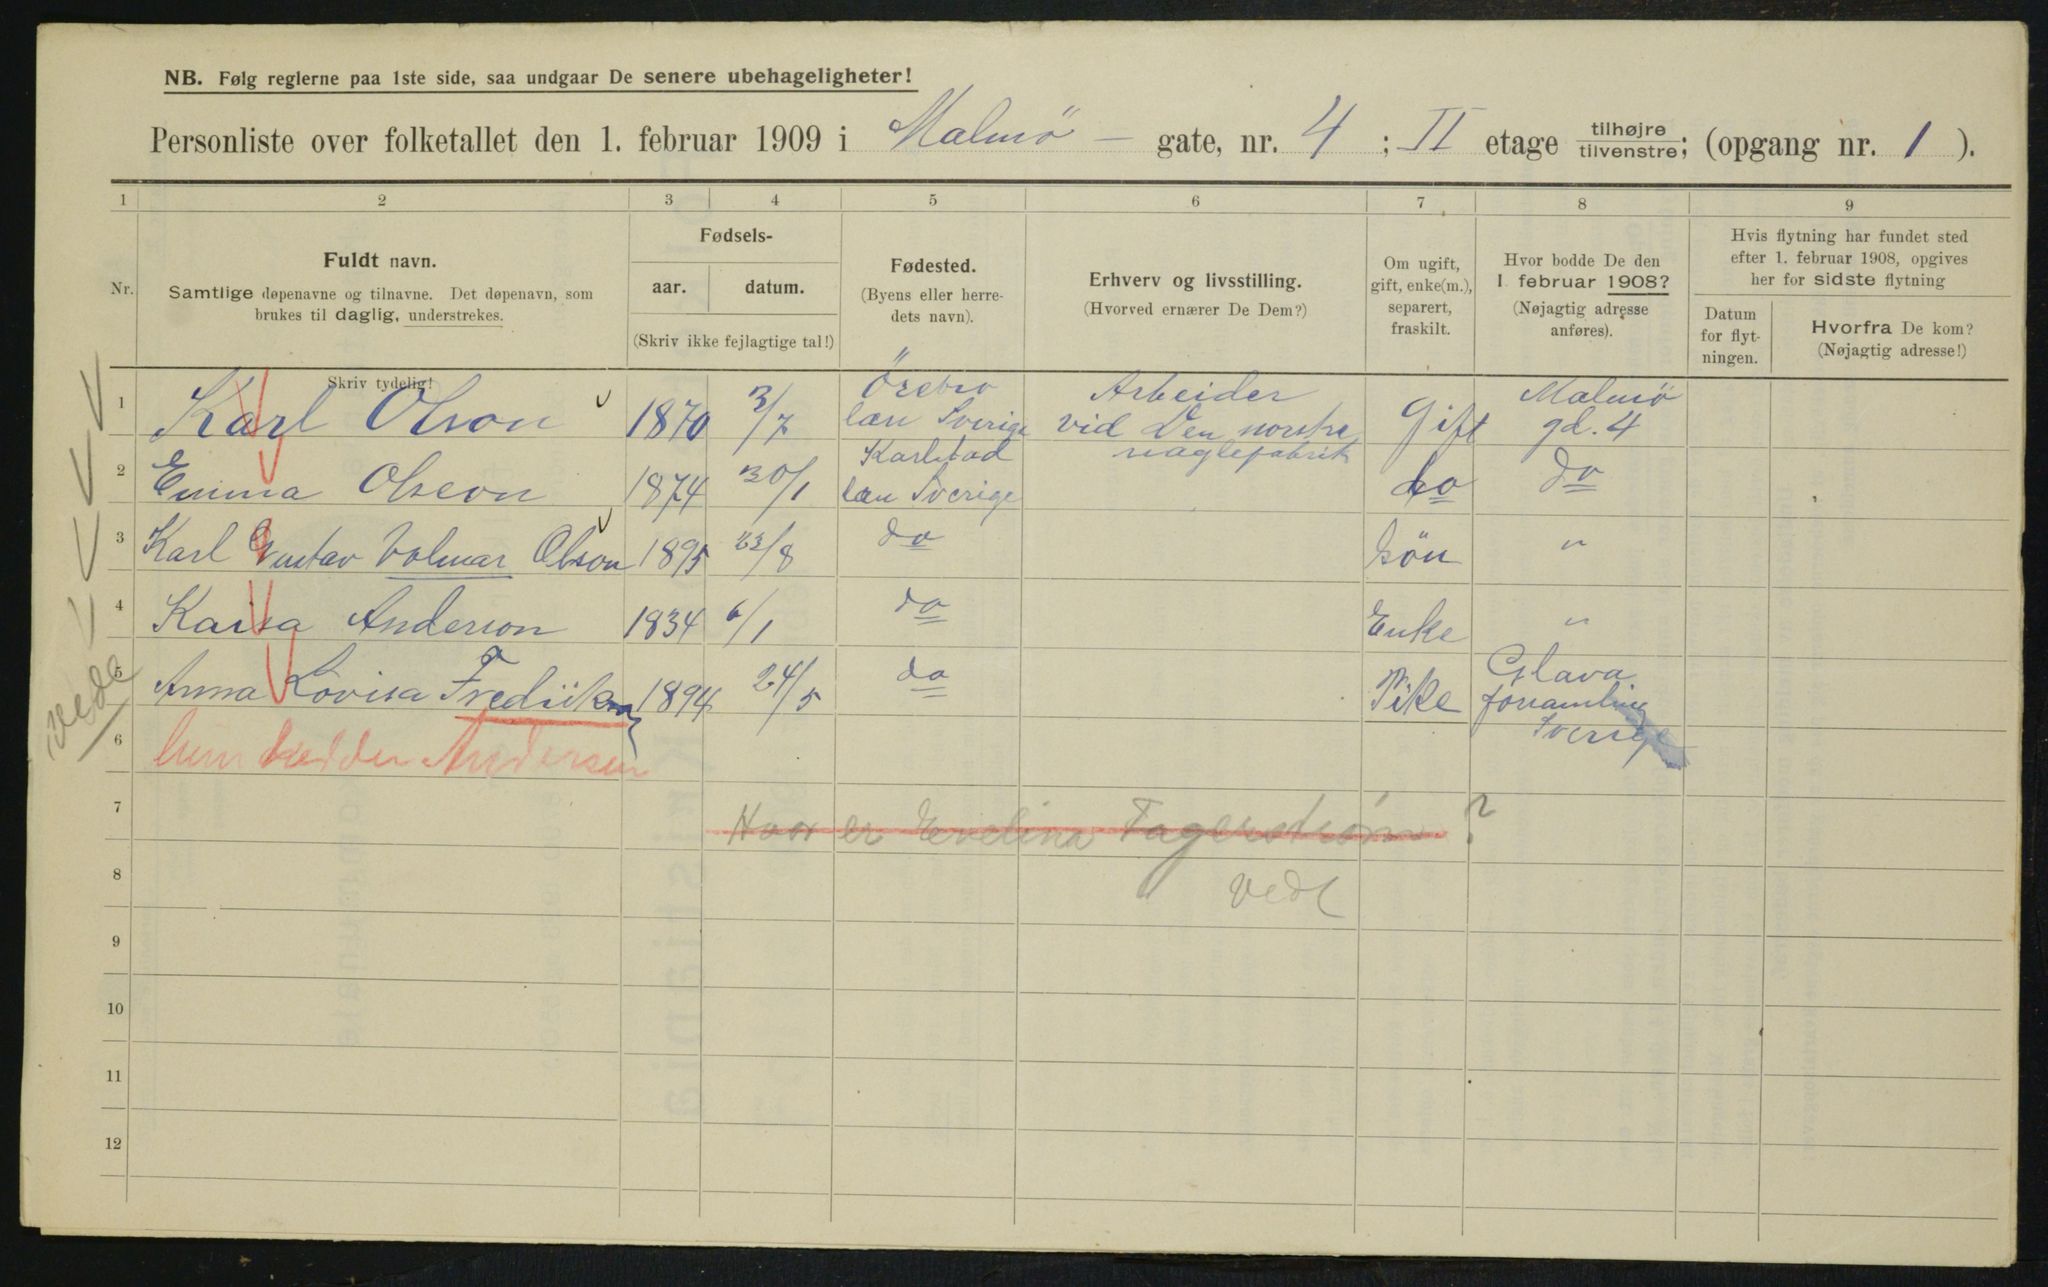 NB. Følg reglerne paa 1ste side, saa undgaar De senere ubehageligheter!
Personliste over folketallet den 1. februar 1909 i Malmö — gate, nr. 4 ; II etage tilhøjre tilvenstre; (opgang nr. 1 ).
1 2 3 4 5 6 7 8 9
Nr.
Fuldt navn.
Samtlige døpenavne og tilnavne. Det døpenavn, som
brukes til daglig, understrekes.
Skriv tydelig!
Fødsels-
aar. datum.
(Skriv ikke fejlagtige tal!)
Fødested.
(Byens eller herre-
dets navn).
Erhverv og livsstilling.
(Hvorved ernærer De Dem?)
Om ugift,
gift, enke(m.),
separert,
fraskilt.
Hvor bodde De den
1. februar 1908?
(Nøjagtig adresse
anføres).
Hvis flytning har fundet sted
efter 1. februar 1908, opgives
her for sidste flytning
Datum
for flyt-
ningen.
Hvorfra De kom?
(Nøjagtig adresse!)
1 Karl Olson 1870 3/7 Örebro län Sverige Arbeider vid Den norske naglefabrik Gift Malmö gd. 4
2 Emma Olseon 1874 30/1 Karlstad län Sverige do do
3 Karl Gustav Volmar Olson 1895 23/8 do Sön "
4 Kaisa Anderson 1834 6/1 do Enke "
5 Anna Lovisa Fredrikson 1894 24/5 do Pike Glava församling Sverige
vedc
6 hun hedder Andersen
7 Hvor er Evelina Fagerstrøm ?
8 vedl
9
10
11
12